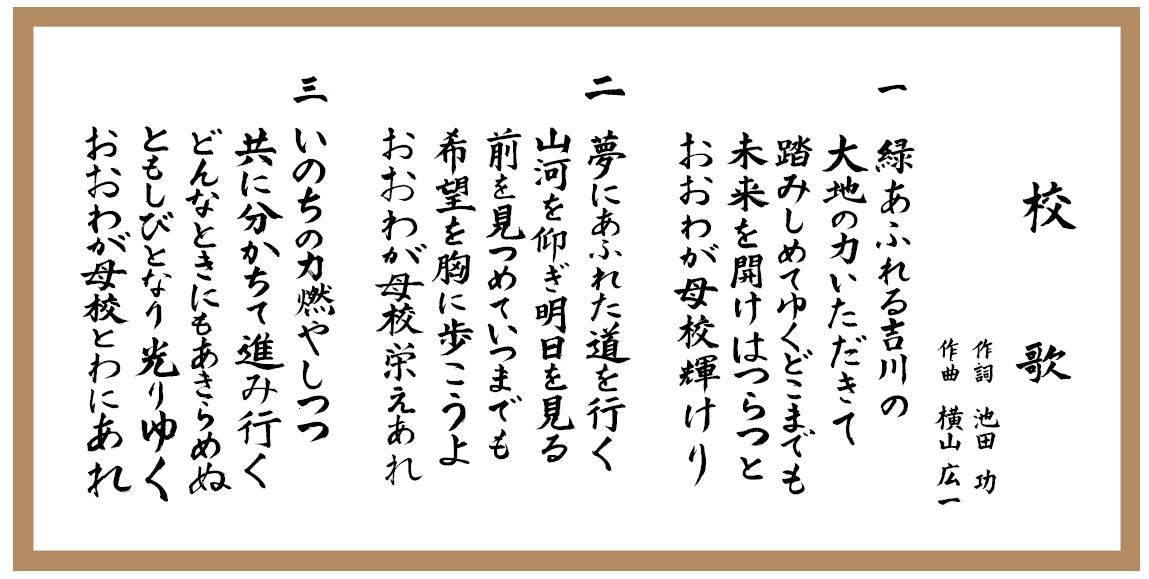 校歌
作詞 池田 功
作曲 横山 広一
一 緑あふれる吉川の
大地の力いただきて
踏みしめてゆくどこまでも
未来を開けはつらつと
おおわが母校輝けり
二 夢にあふれた道を行く
山河を仰ぎ明日を見る
前を見つめていつまでも
希望を胸に歩こうよ
おおわが母校栄えあれ
三 いのちの力燃やしつつ
共に分かちて進み行く
どんなときにもあきらめぬ
ともしびとなり光りゆく
おおわが母校とわにあれ